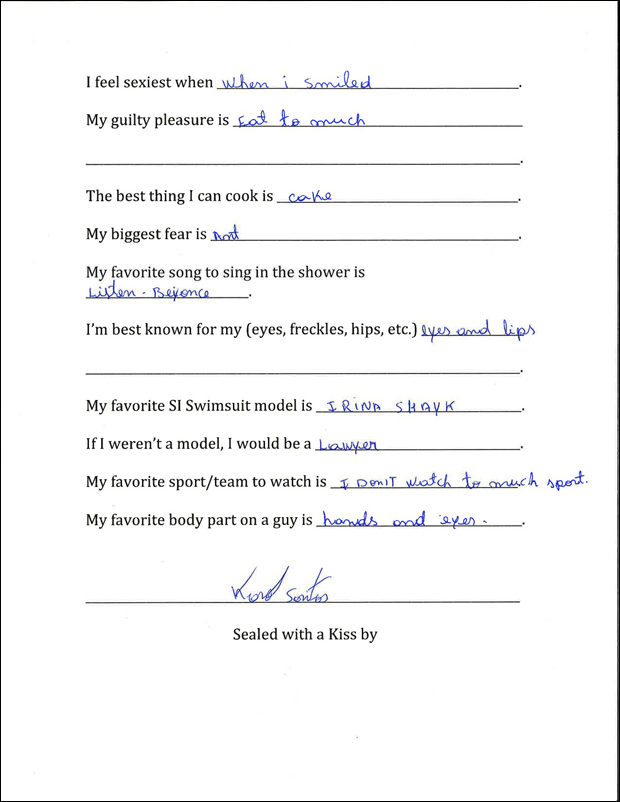 I feel sexiest when when i smiled.
My guilty pleasure is Eat to much
.
The best thing I can cook is cake.
My biggest fear is .
My favorite song to sing in the shower is
Listen - Beyonce.
I'm best known for my (eyes, freckles, hips, etc.) eyes and lips
.
My favorite SI Swimsuit model is IRINA SHAYK.
If I weren't a model, I would be a Lawyer.
My favorite sport/team to watch is I DON'T watch to much sport.
My favorite body part on a guy is hands and eyes.
Sealed with a Kiss by